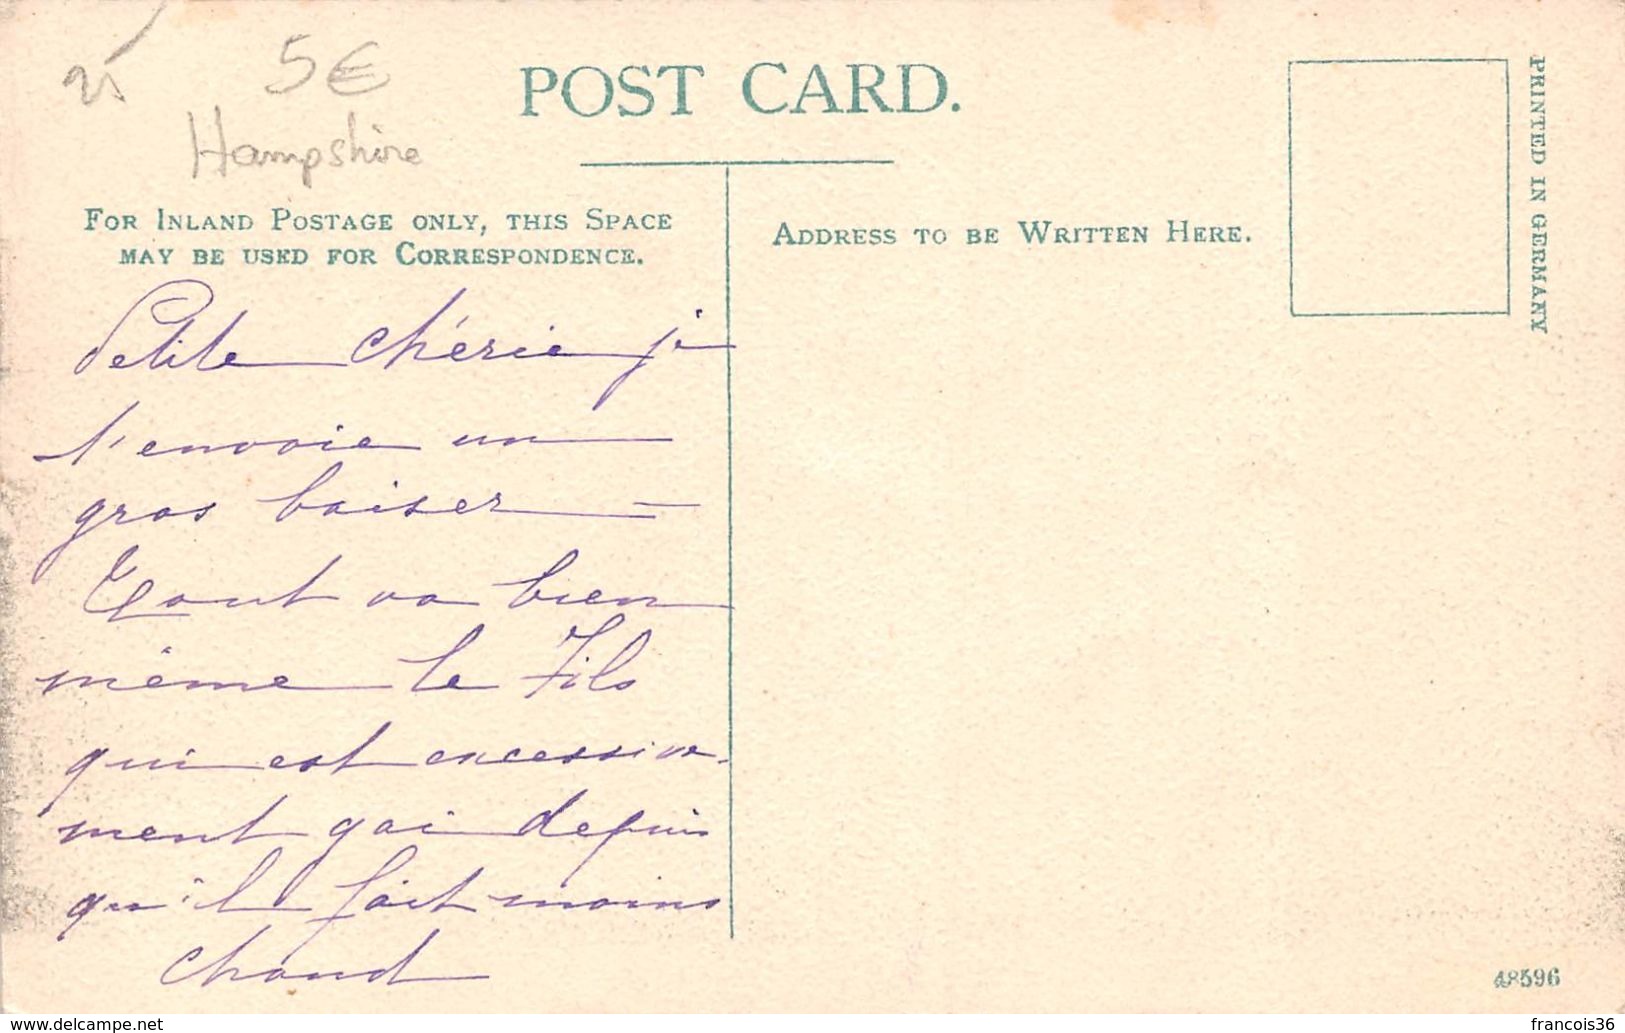 25
5€
Hampshire
POST CARD.
FOR INLAND POSTAGE ONLY, THIS SPACE
MAY BE USED FOR CORRESPONDENCE.
ADDRESS TO BE WRITTEN HERE.
PRINTED IN GERMANY
Petite chérie je
t'envoie un
gros baiser =
Tout va bien
même le Fils
qui est excessive-
ment gai depuis
qu'il fait moins
chaud
48596
www.delcampe.net
francois36